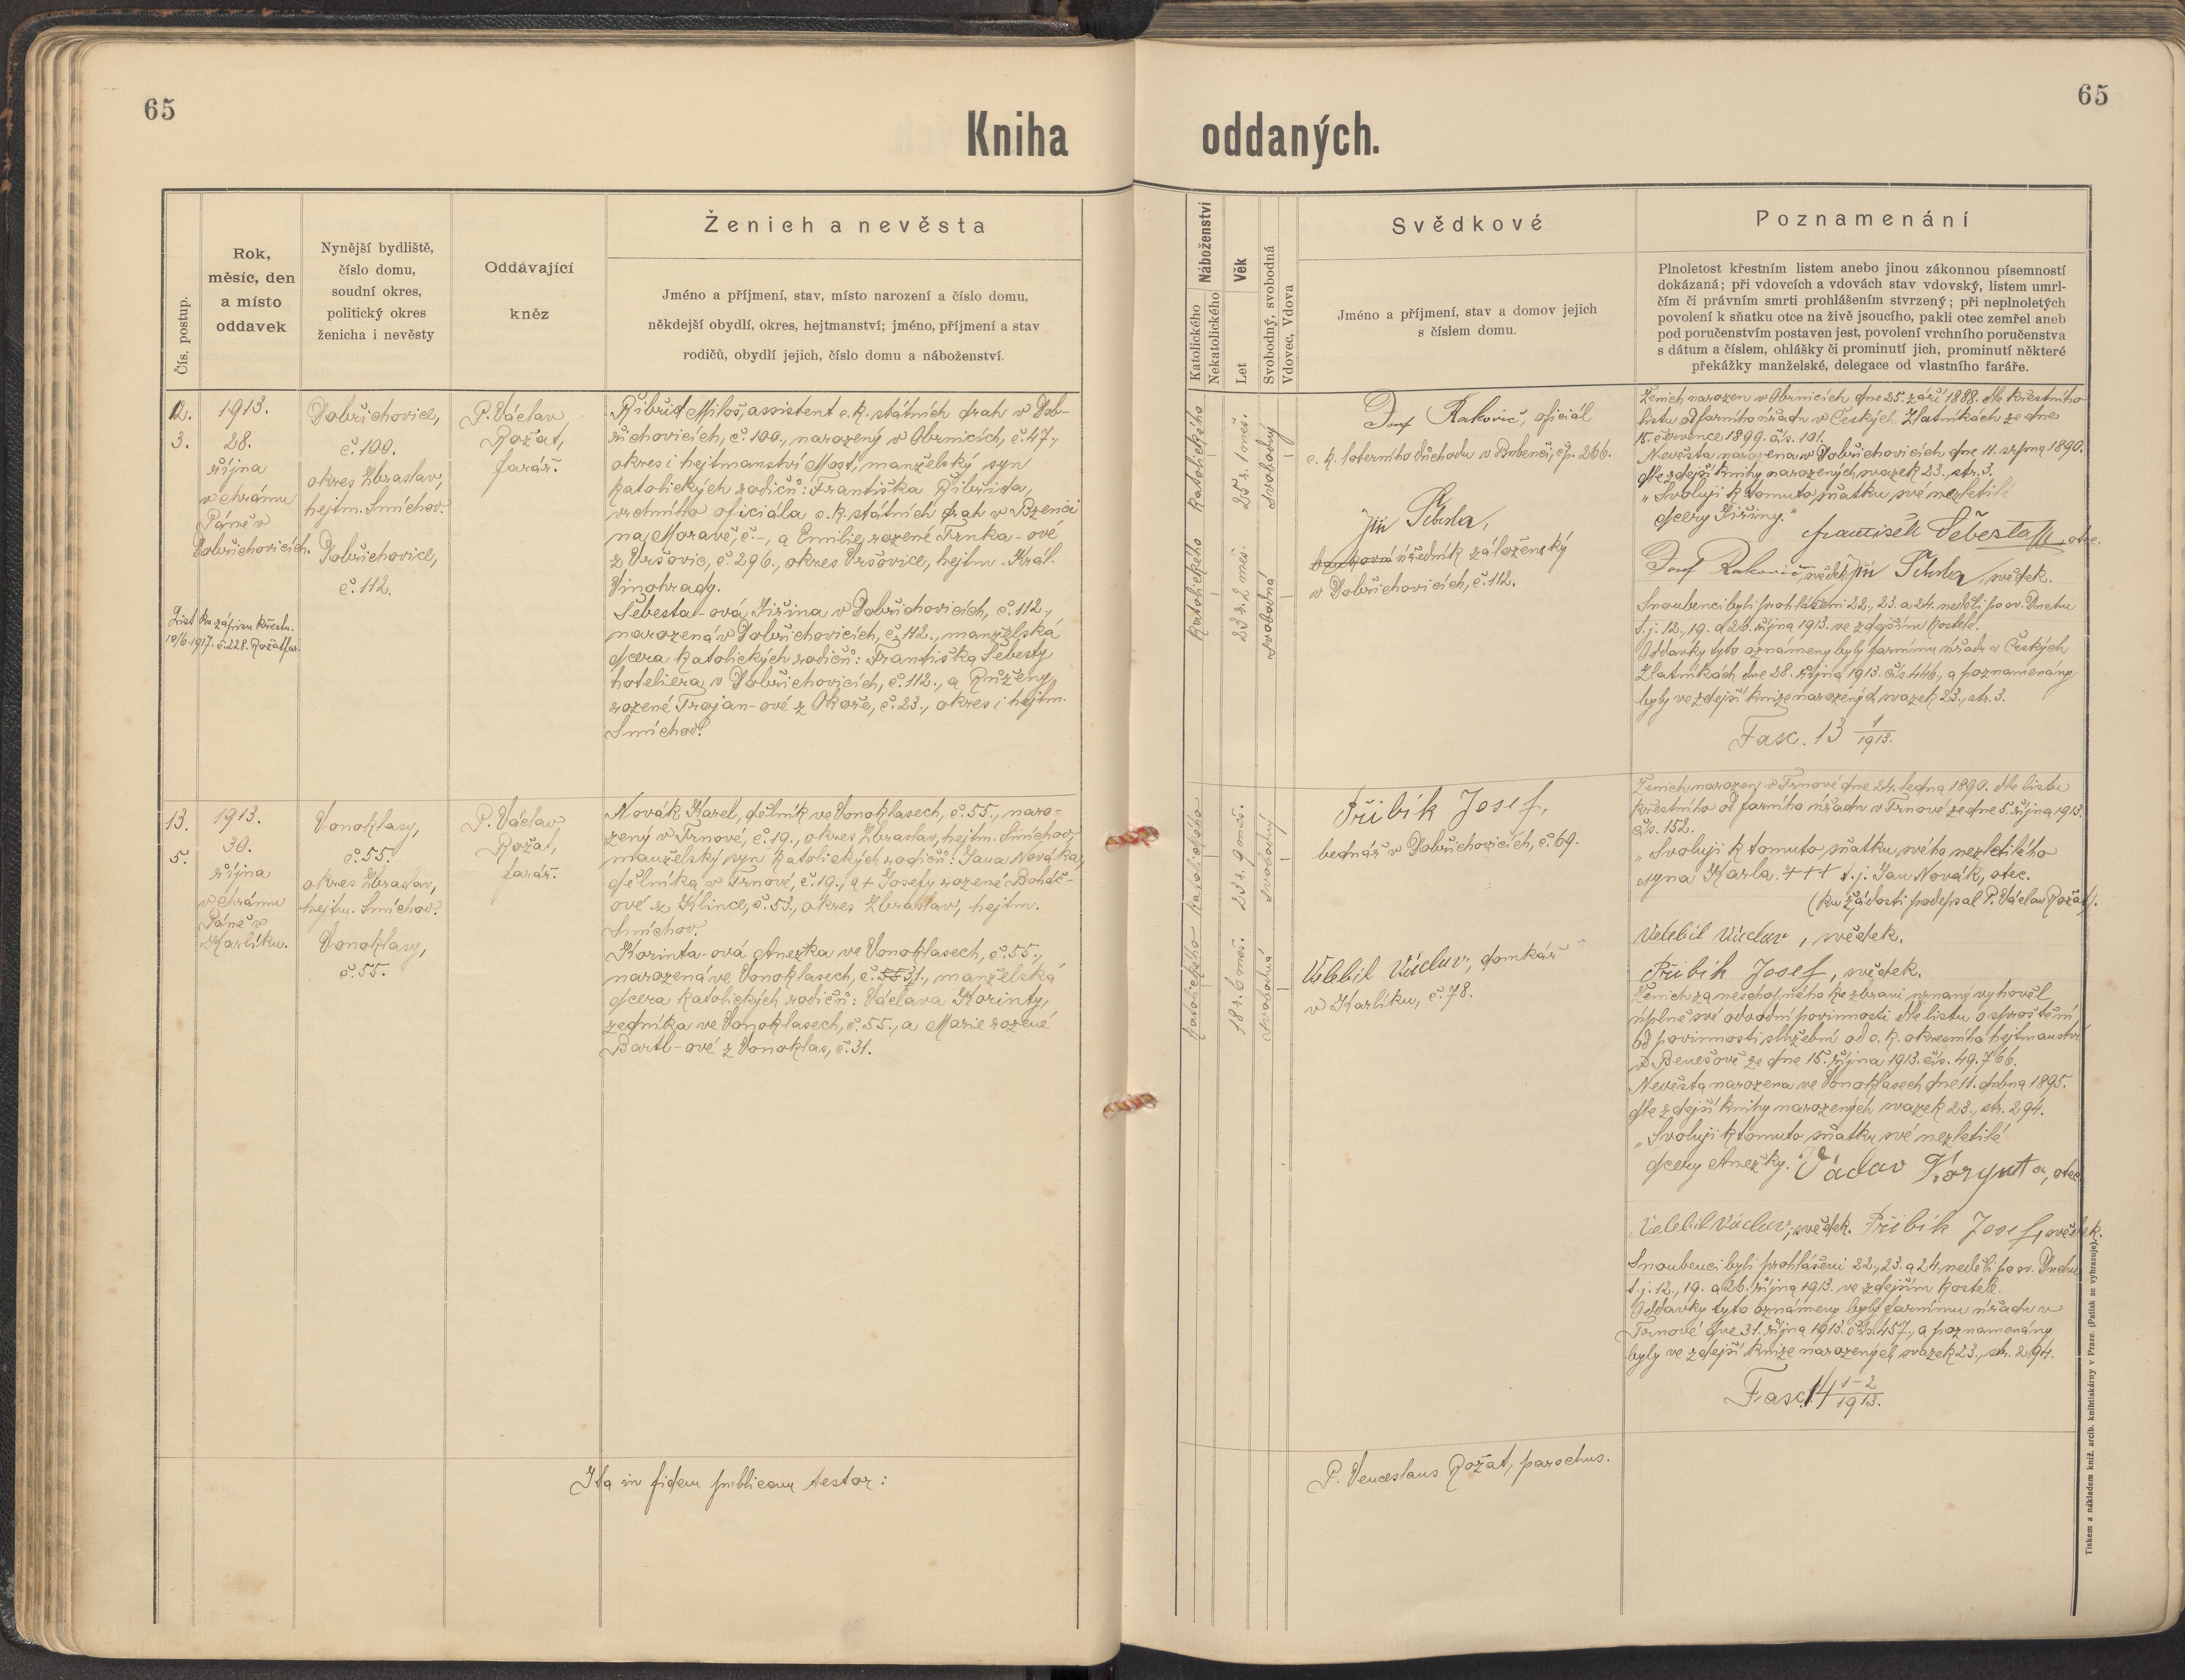 65
65
Kniha oddaných.
Čís. postup.
Rok,
měsíc, den
a místo
oddavek
Nynější bydliště,
číslo domu,
soudní okres,
politický okres
ženicha i nevěsty
Oddávající
kněz
Ženich a nevěsta
Jméno a příjmení, stav, místo narození a číslo domu,
někdejší obydlí, okres, hejtmanství; jméno, příjmení a stav
rodičů, obydlí jejich, číslo domu a náboženství.
Náboženství
Katolického
Nekatolického
Věk
Let
Svobodný, svobodná
Vdovec, Vdova
Svědkové
Jméno a příjmení, stav a domov jejich
s číslem domu.
Poznamenání
Plnoletost křestním listem anebo jinou zákonnou písemností
dokázaná; při vdovcích a vdovách stav vdovský, listem umrl-
čím či právním smrti prohlášením stvrzený; při neplnoletých
povolení k sňatku otce na živě jsoucího, pakli otec zemřel aneb
pod poručenstvím postaven jest, povolení vrchního poručenstva
s dátum a číslem, ohlášky či prominutí jich, prominutí některé
překážky manželské, delegace od vlastního faráře.
12.
3.
1913.
28.
října
v chrámu
Páně v
Dobřichovicích.
List ku zápisu křestu.
10/6. 1917. č. 228. Rožát far.
Dobřichovice,
č. 100.
okres Zbraslav,
hejtm. Smíchov.
Dobřichovice,
č. 112.
P. Václav
Rožát,
farář.
Miloš, assistent c. k. státních drah v Dob-
řichovicích, č. 100., narozený v Obrnicích, č. 47.,
okres i hejtmanství Most, manželský syn
katolických rodičů: Františka
vrchního oficiála c. k. státních drah v Bzenci
na Moravě, č. –, a Emilie rozené Trnka-ové
z Vršovic, č. 296., okres Vršovice, hejtm. Král.
Vinohrady.
Šebesta-ová Jiřina v Dobřichovicích, č. 112.,
narozená v Dobřichovicích, č. 112., manželská
dcera katolických rodičů: Františka Šebesty,
hoteliera v Dobřichovicích, č. 112., a Růženy
rozené Trojan-ové z Okoře, č. 23., okres i hejtm.
Smíchov.
katolického katolického
25 r. 1 měs.
23 r. 2 měs.
svobodný
svobodná
Josef Rakovič, oficiál
c. k. loterního důchodu v Bubenči, čp. 266.
Jiří Šebesta,
bankovní úředník záloženský
v Dobřichovicích, č. 112.
Ženich narozen v Obrnicích dne 25. září 1888. dle křestního
listu od farního úřadu v Českých Zlatníkách ze dne
15. července 1899. čís. 101.
Nevěsta narozena v Dobřichovicích dne 11. srpna 1890.
dle zdejší knihy narozených svazek 23., str. 3.
„Svoluji k tomuto sňatku své nezletilé
dcery Jiřiny." František Šebesta, otec.
Josef Rakovič, svědek. Jiří Šebesta, svědek.
Snoubenci byli prohlášeni 22., 23. a 24. neděli po sv. Duchu
t. j. 12., 19. a 26. října 1913. ve zdejším kostele.
Oddavky tyto oznámeny byly farnímu úřadu v Českých
Zlatníkách dne 28. října 1913. čís. 446., a poznamenány
byly ve zdejší knize narozených svazek 23., str. 3.
Fasc. 13 1/1913.
13.
5.
1913.
30.
října
v chrámu
Páně v
Karlíku.
Vonoklasy,
č. 55.
okres Zbraslav,
hejtm. Smíchov.
Vonoklasy,
č. 55.
P. Václav
Rožát,
farář.
Novák Karel, dělník ve Vonoklasech, č. 55., naro-
zený v Trnové, č. 19., okres Zbraslav, hejtm. Smíchov,
manželský syn katolických rodičů: Jana Nováka,
dělníka v Trnové, č. 19., a + Josefy rozené Boháč-
ové z Klince, č. 53., okres Zbraslav, hejtm.
Smíchov.
Korinta-ová Anežka ve Vonoklasech, č. 55.,
narozená ve Vonoklasech, č. 55 31., manželská
dcera katolických rodičů: Václava Korinty,
zedníka ve Vonoklasech, č. 55., a Marie rozené
Bartl-ové z Vonoklas, č. 31.
katolického katolického
23 r. 9 měs.
18 r. 6 měs.
svobodný
svobodná
Přibík Josef,
bednář v Dobřichovicích, č. 69.
Velebil Václav, domkář
v Karlíku, č. 78.
Ženich narozen v Trnové dne 24. ledna 1890. dle listu
křestního od farního úřadu v Trnové ze dne 5. října 1913.
čís. 152.
„Svoluji k tomuto sňatku svého nezletilého
syna Karla. +++ t. j. Jan Novák, otec.
(ku žádosti podepsal P. Václav Rožát).
Velebil Václav, svědek.
Přibík Josef, svědek.
Ženich za neschopného ke zbrani uznaný vyhověl
úplně své odvodní povinnosti dle listu o sproštění
od povinnosti služební od c. k. okresního hejtmanství
v Benešově ze dne 15. října 1913. čís. 49.766.
Nevěsta narozena ve Vonoklasech dne 11. dubna 1895.
dle zdejší knihy narozených svazek 23., str. 294.
„Svoluji k tomuto sňatku své nezletilé
dcery Anežky. Václav Korynta, otec
Velebil Václav, svědek. Přibík Josef, svědek.
Snoubenci byli prohlášeni 22., 23. a 24. neděli po sv. Duchu
t. j. 12., 19. a 26. října 1913. ve zdejším kostele.
Oddavky tyto oznámeny byly farnímu úřadu v
Trnové dne 31. října 1913. čís. 457., a poznamenány
byly ve zdejší knize narozených svazek 23., str. 294.
Fasc. 14 1-2/1913.
Ita in fidem publicam testor:
P. Venceslaus Rožát, parochus.
Tiskem a nákladem kníž. arcib. knihtiskárny v Praze. (Patisk se vyhrazuje).